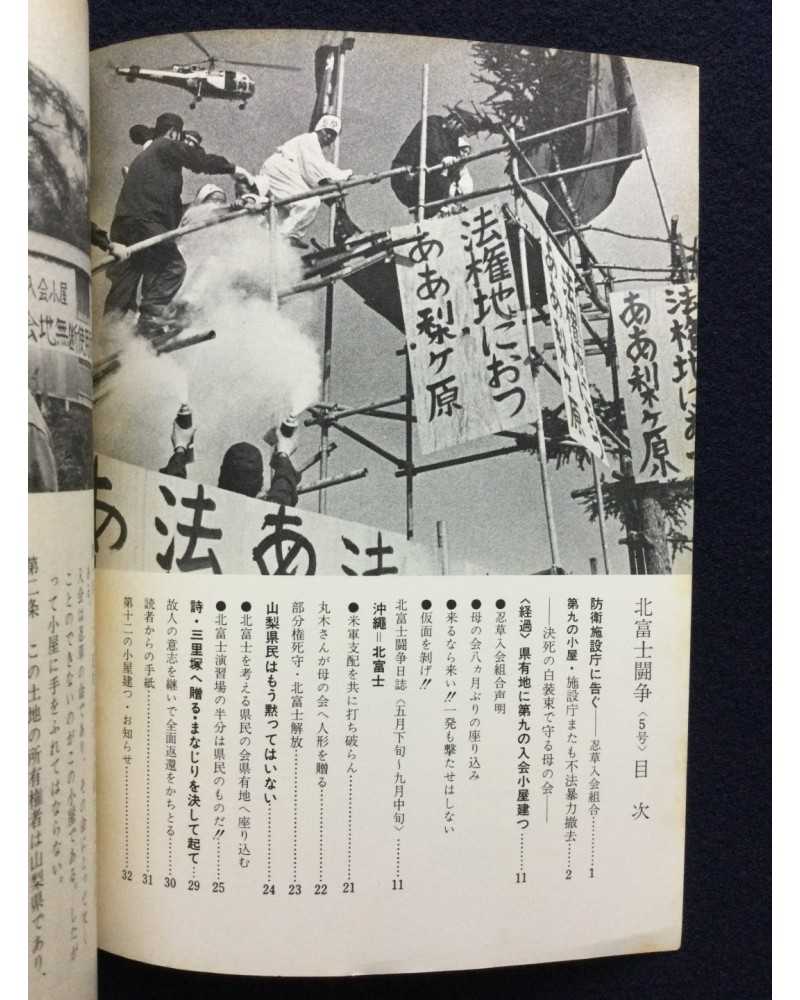 法権地におつ
ああ梨ケ原
法権地におつ
ああ梨ケ原
法権地におつ
ああ梨ケ原
あ法あ法
北富士闘争〈5号〉目次
防衛施設庁に告ぐ――忍草入会組合……1
第九の小屋・施設庁またも不法暴力撤去……2
――決死の白装束で守る母の会――
〈経過〉県有地に第九の入会小屋建つ……11
●忍草入会組合声明
●母の会八カ月ぶりの座り込み
●来るなら来い!!一発も撃たせはしない
●仮面を剥げ!!
北富士闘争日誌〈五月下旬〜九月中旬〉……11
沖縄=北富士
●米軍支配を共に打ち破らん……21
丸木さんが母の会へ人形を贈る……22
部分権死守・北富士解放……23
山梨県民はもう黙ってはいない……24
●北富士を考える県民の会県有地へ座り込む
●北富士演習場の半分は県民のものだ!!……25
詩・三里塚へ贈る・まなじりを決して起て……29
故人の意志を継いで全面返還をかちとる……30
読者からの手紙……31
第十二の小屋建つ・お知らせ……32
入会小屋
会地無断使用
ことのできないのがこの小屋である。したが
って小屋に手をふれてはならない。
第二条 この土地の所有権者は山梨県であり、